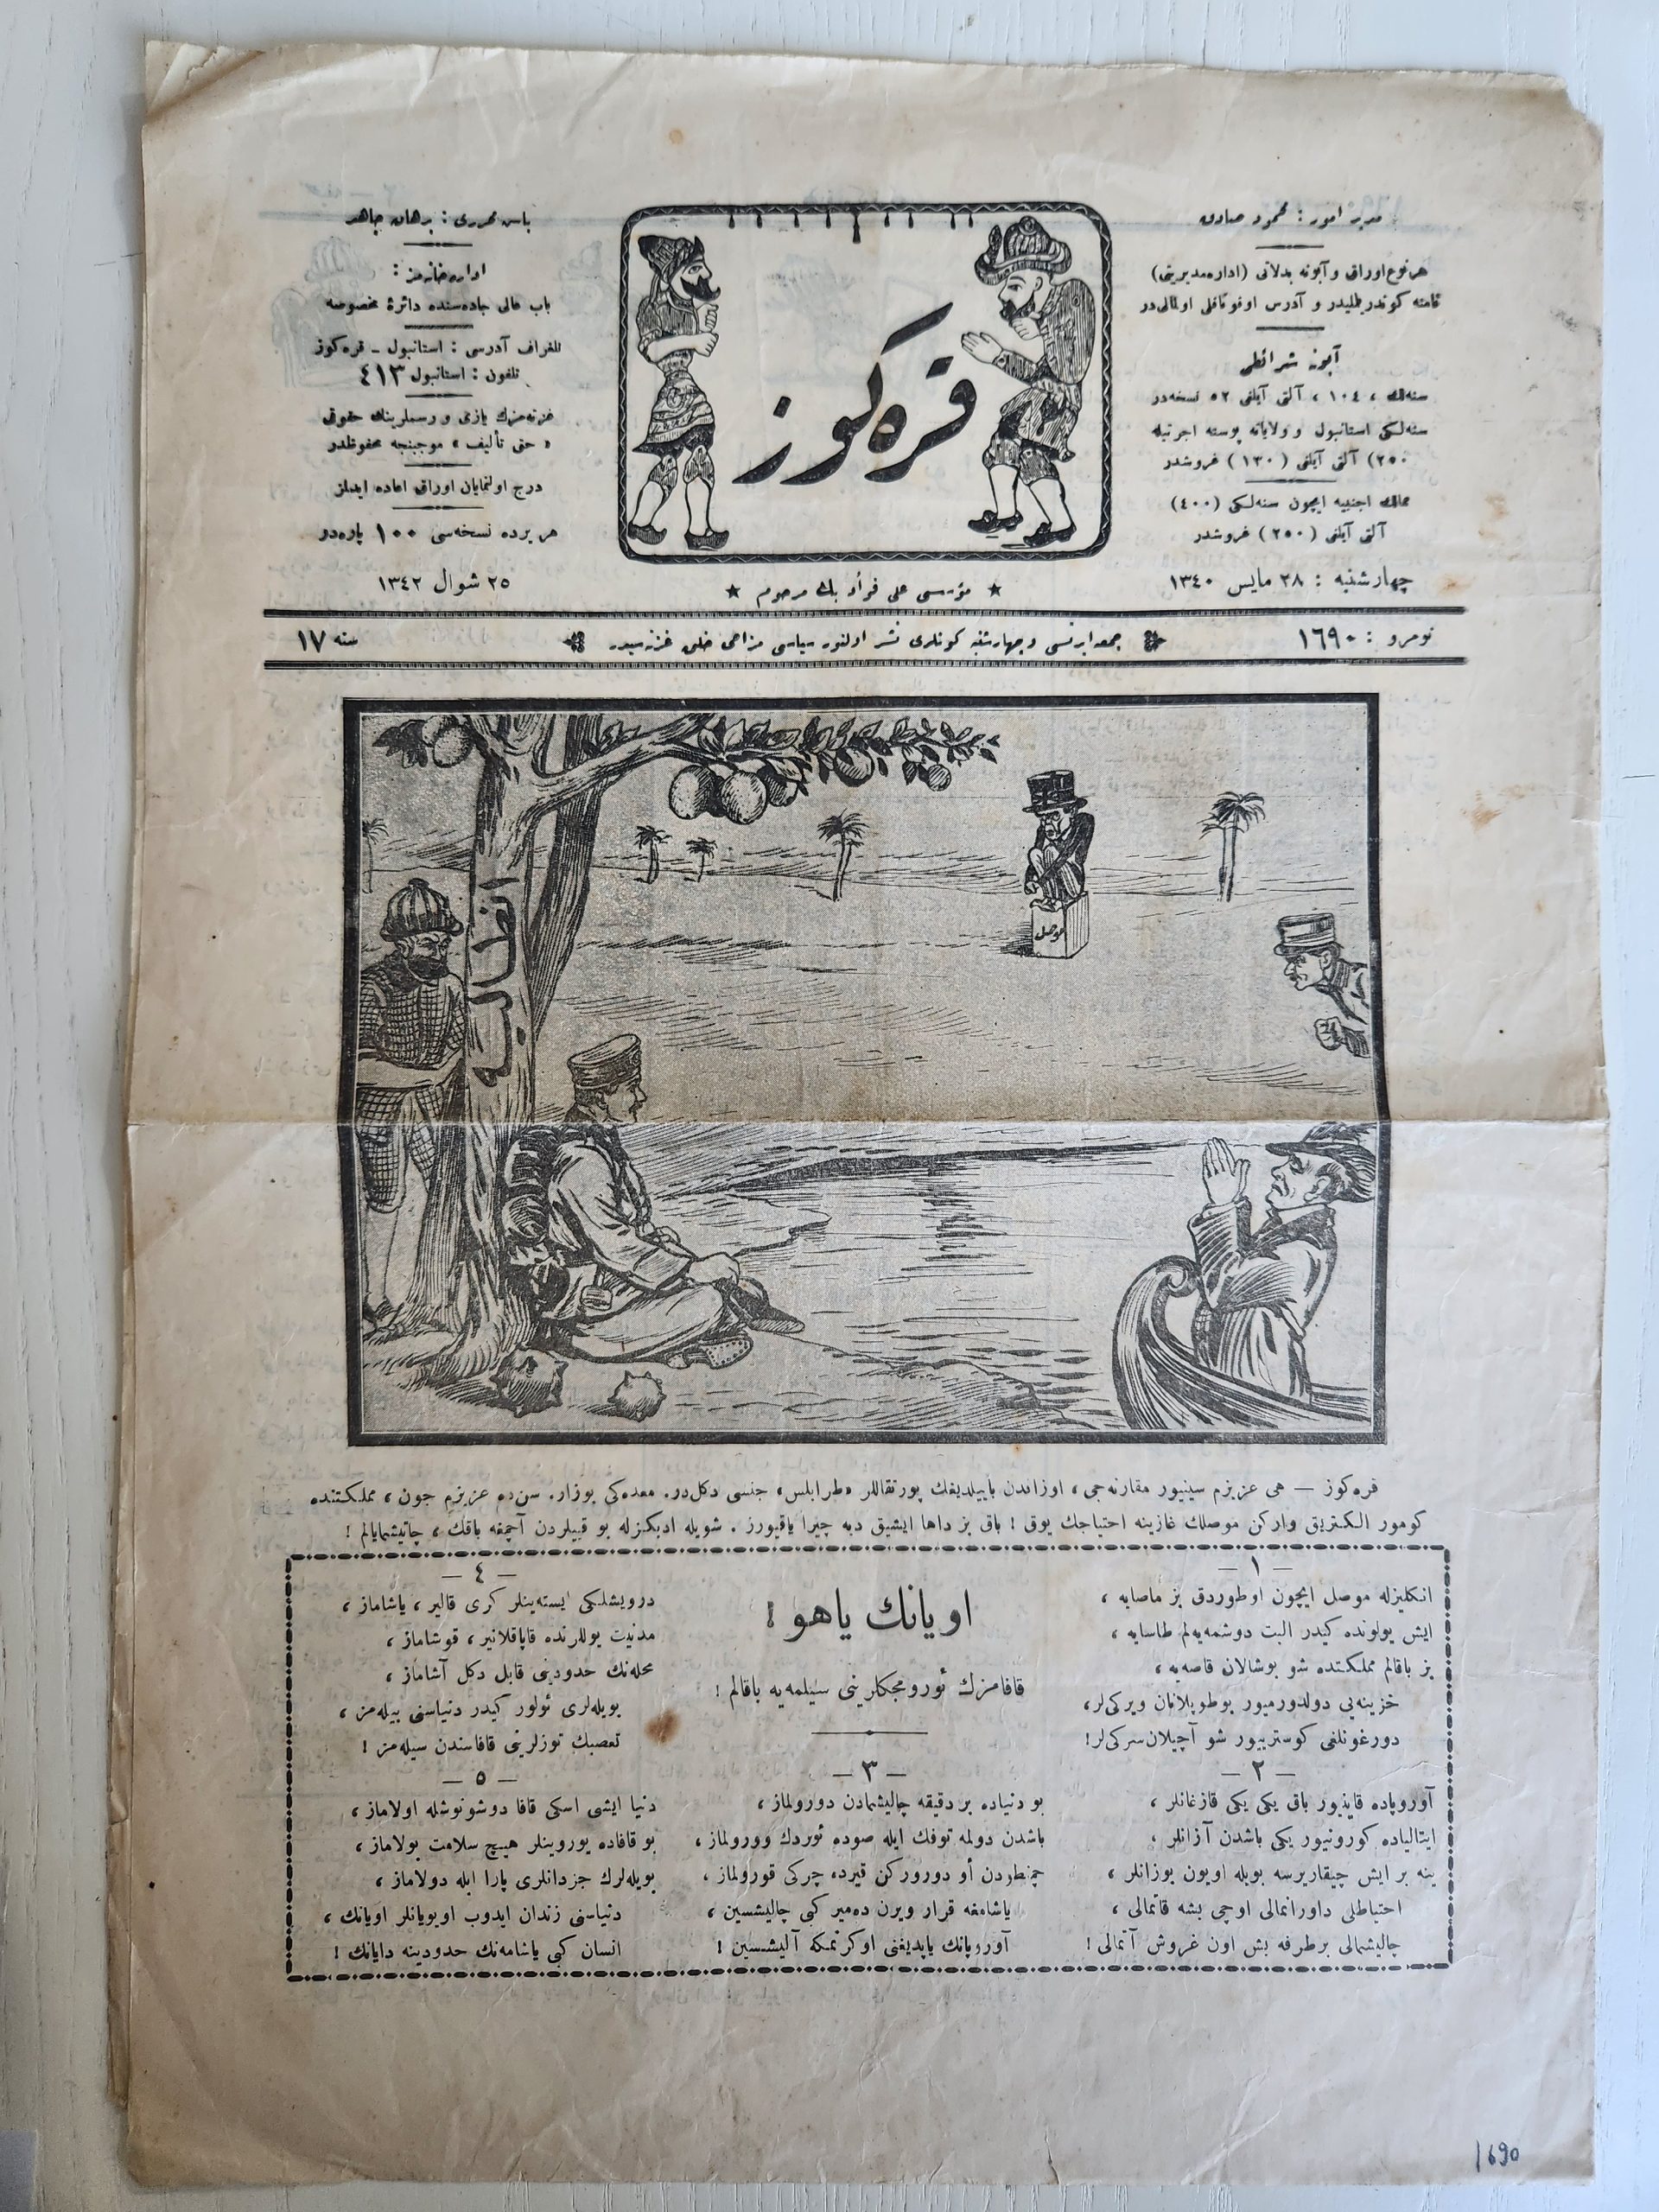 مدیر امور : محمود صادق
هر نوع اوراق و آبونه بدلاتی (اداره مدیریتی)
نامنه كوندریلملیدر و آدرس اوقوناقلی اولمالی‌در
آبونه شرائطی
سنه‌لك ، ١٠٤ ، آلتی آیلغی ٥٢ نسخه‌در
سنه‌لكی استانبول و ولایاته پوسته اجرتیله
٢٥٠) آلتی آیلغی (١٣٠) غروشدر
ممالك اجنبیه ایچون سنه‌لكی (٤٠٠)
آلتی آیلغی (٢٥٠) غروشدر
چهارشنبه : ٢٨ مایس ١٣٤٠
قره‌كوز
★ مؤسسی علی فؤاد بك مرحوم ★
باش محرری : برهان جاهد
اداره‌خانه‌مز :
باب عالی جاده‌سنده دائرهٔ مخصوصه
تلغراف آدرسی : استانبول ـ قره‌كوز
تلفون : استانبول ٤١٣
غزته‌مزك یازی و رسملرینك حقوقی
« حق تألیف » موجبنجه محفوظدر
درج اولنمایان اوراق اعاده ایدلمز
هر یرده نسخه‌سی ١٠٠ پاره‌در
٢٥ شوال ١٣٤٢
نومرو : ١٦٩٠
جمعه ایرتسی و چهارشنبه كونلری نشر اولنور سیاسی مزاحی خلق غزته‌سیدر
سنه ١٧
انطالیه
موصل
قره‌كوز — هی عزیزم سینیور مقارنه‌جی ، اوزاندن باییلدیغك پورتقاللر «طرابلس» جنسی دكل‌در. معده‌كی بوزار. سن‌ده عزیزم جون ، مملكتنده
كومور الكتریق واركن موصلك غازینه احتیاجك یوق ! باق بز داها ایشیق دیه چیرا یاقیورز . شویله ادبكزله بو قییلردن آچمغه باقك ، چاتیشمایالم !
اویانك یاهو !
قافامزك ئورومجكلرینی سیلمه‌یه باقالم !
— ١ —
انكلیزله موصل ایچون اوطوردق بز ماصایه ،
ایش یولونده كیدر البت دوشمه‌یه‌لم طاسایه ،
بز باقالم مملكتده شو بوشالان قاصه‌یه ،
خزینه‌یی دولدورمیور بو طوپلانان ویركی‌لر ،
دورغونلغی كوسترییور شو آچیلان سركی‌لر!
— ٢ —
آوروپاده قاینیور باق یكی یكی قازغانلر ،
ایتالیاده كورونیور یكی باشدن آزانلر ،
ینه بر ایش چیقاریرسه بویله اویون بوزانلر ،
احتیاطلی داورانمالی اوچی بشه قاتمالی ،
چالیشمالی برطرفه بش اون غروش آتمالی !
— ٣ —
بو دنیاده بر دقیقه چالیشمادن دورولماز ،
باشدن دولمه توفك ایله صوده ئوردك وورولماز ،
یاشامغه قرار ویرن ده‌میر كبی چالیشسین ،
آوروپانك یاپدیغنی اوكرنمكه آلیشسین !
— ٤ —
درویشلكی ایسته‌ینلر كری قالیر ، یاشاماز ،
مدنیت یوللرنده قاپاقلانیر ، قوشاماز ،
محله‌نك حدودینی قابل دكل آشاماز ،
بویله‌لری ئولور كیدر دنیاسنی بیله‌مز ،
تعصبك توزلرینی قافاسندن سیله‌مز !
— ٥ —
دنیا ایشی اسكی قافا دوشونوشله اولاماز ،
بو قافاده یوروینلر هیچ سلامت بولاماز ،
بویله‌لرك جزدانلری پارا ایله دولاماز ،
دنیاسنی زندان ایدوب اویویانلر اویانك ،
انسان كبی یاشامه‌نك حدودینه دایانك !
1690